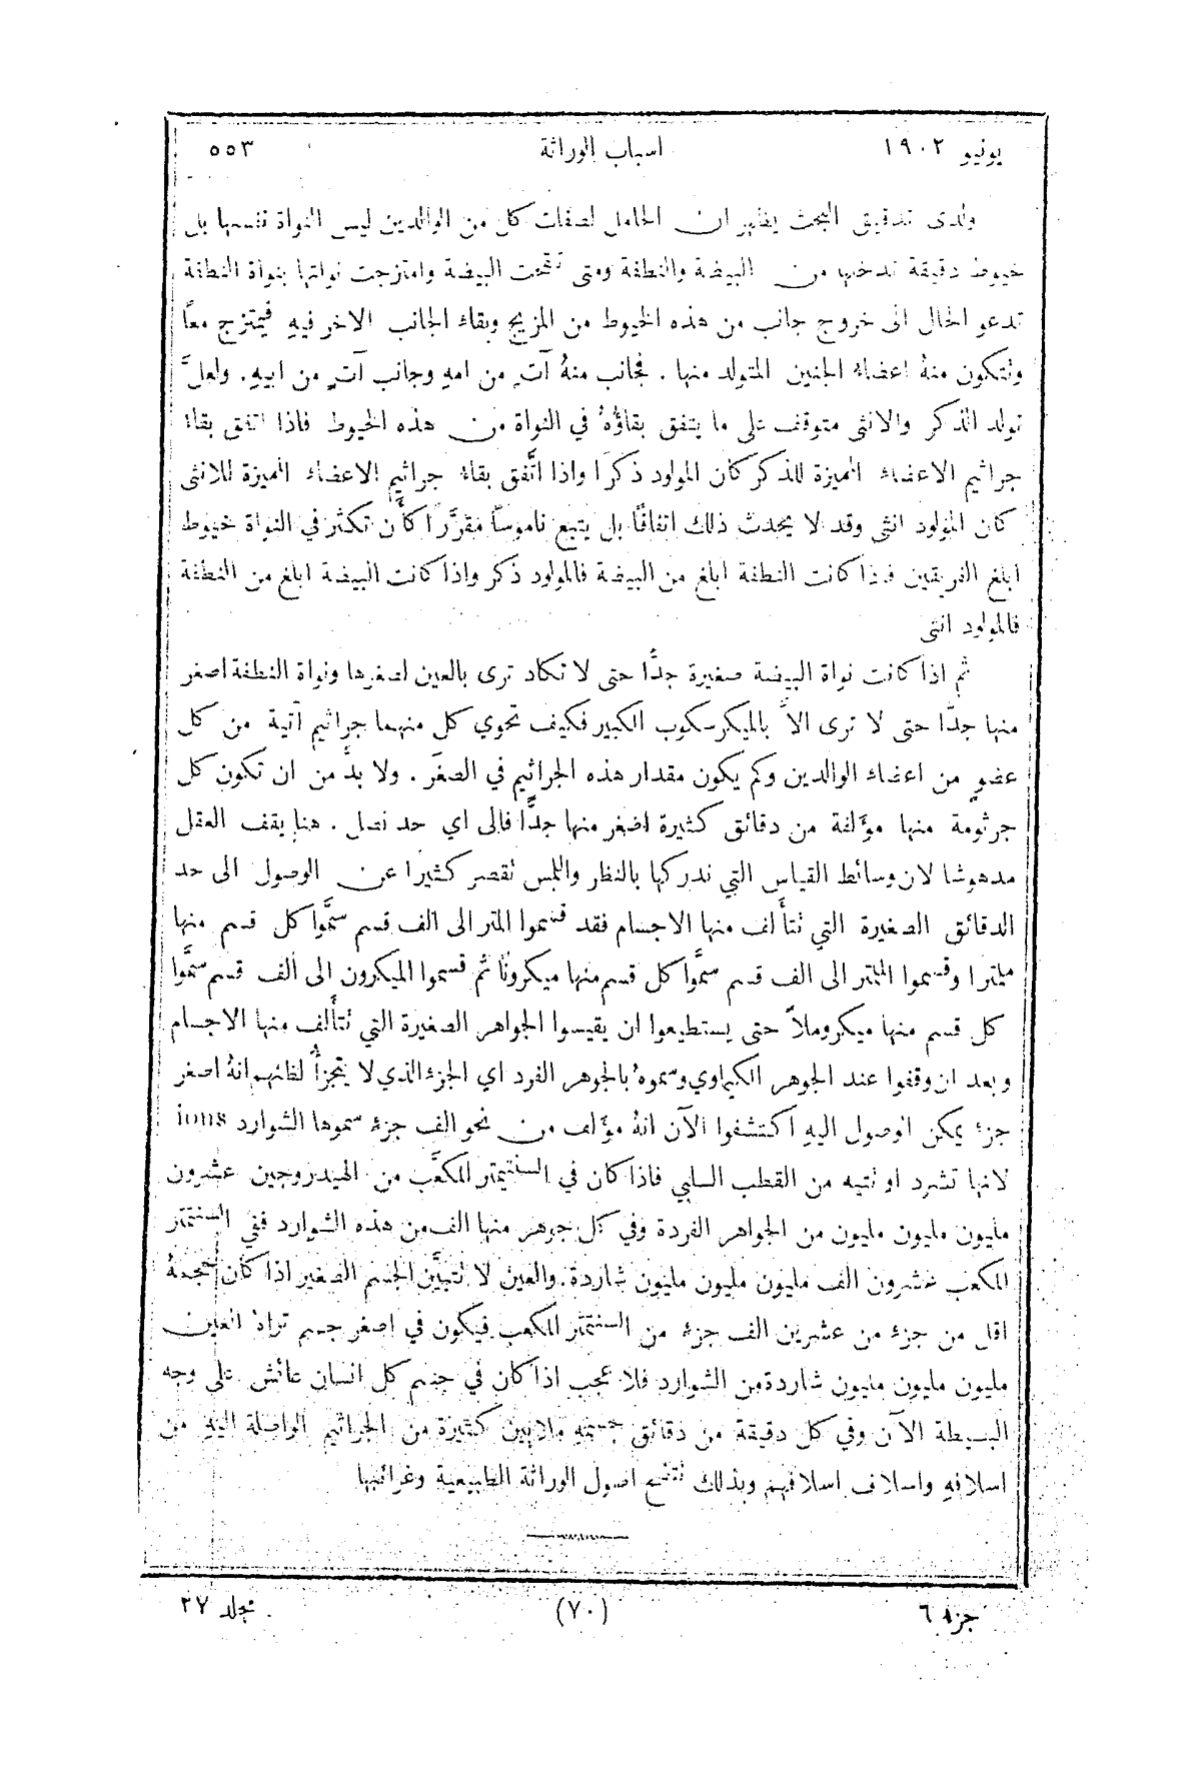 يونيو ١٩٠٢ اسباب الوراثة ٥٥٣
ولدى تدقيق البحث يظهر ان الحامل لصفات كل من الوالدين ليس النواة نفسها بل
خيوط دقيقة تدخلها من البيضة والنطفة ومتى تقحت البيضة وامتزجت نواتها بنواة النطفة
تدعو الحال الى خروج جانب من هذه الخيوط من المزيج وبقاء الجانب الاخر فيهِ فيمتزج معًا
وتتكون منهُ اعضاء الجنين المتولد منها . فجانب منهُ آتٍ من امهِ وجانب آتٍ من ابيهِ. ولعلَّ
تولد الذكر والانثى متوقف على ما يتفق بقاؤُهُ في النواة من هذه الخيوط فاذا اتفق بقاء
جراثيم الاعضاء المميزة للذكر كان المولود ذكرًا واذا اتَّفق بقاء جراثيم الاعضاء المميزة للانثى
كان المولود انثى وقد لا يحدث ذلك اتفاقًا بل يتبع ناموسًا مقرَّرًا كأَن تكثر في النواة خيوط
ابلغ الفريقين فاذا كانت النطفة ابلغ من البيضة فالمولود ذكر واذا كانت البيضة ابلغ من النطفة
فالمولود انثى
ثم اذا كانت نواة البيضة صغيرة جدًّا حتى لا تكاد ترى بالعين لصغرها ونواة النطفة اصغر
منها جدًّا حتى لا ترى الاَّ بالميكرسكوب الكبير فكيف تحوي كل منهما جراثيم آتية من كل
عضوٍ من اعضاء الوالدين وكم يكون مقدار هذه الجراثيم في الصغَر . ولا بدَّ من ان تكون كل
جرثومة منها مؤلفة من دقائق كثيرة اصغر منها جدًّا فالى اي حد نصل . هنا يقف العقل
مدهوشًا لان وسائط القياس التي ندركها بالنظر واللمس تقصر كثيرًا عن الوصول الى حد
الدقائق الصغيرة التي تتأَلف منها الاجسام فقد قسموا المتر الى الف قسم سمَّوا كل قسم منها
ملمترا وقسموا الملمتر الى الف قسم سمَّوا كل قسم منها ميكرونًا ثم قسموا الميكرون الى الف قسم سمَّوا
كل قسم منها ميكروملاًّ حتى يستطيعوا ان يقيسوا الجواهر الصغيرة التي تتأَلف منها الاجسام
وبعد ان وقفوا عند الجوهر الكيماوي وسموهُ بالجوهر الفرد اي الجزء الذي لا يتجزأُ لظنهم انهُ اصغر
جزء يمكن الوصول اليهِ اكتشفوا الآن انهُ مؤلف من نحو الف جزء سموها الشوارد ions
لانها تشرد او تتيه من القطب السلبي فاذا كان في السنتيمتر المكعَّب من الهيدروجين عشرون
مليون مليون مليون من الجواهر الفردة وفي كل جوهر منها الف من هذه الشوارد ففي السنتمتر
المكعب عشرون الف مليون مليون مليون شاردة. والعين لا تتبيَّن الجسم الصغير اذا كان حجمهُ
اقل من جزء من عشرين الف جزء من السنتمتر المكعب فيكون في اصغر جسم تراهُ العين
مليون مليون مليون شاردة من الشوارد فلا عجب اذا كان في جسم كل انسان عائش على وجه
البسيطة الآن وفي كل دقيقة من دقائق جسمهِ ملايين كثيرة من الجراثيم الواصلة اليهِ من
اسلافهِ واسلاف اسلافهم وبذلك تتضح اصول الوراثة الطبيعية وغرائبها
جزء ٦ (٧٠) مجلد ٢٧